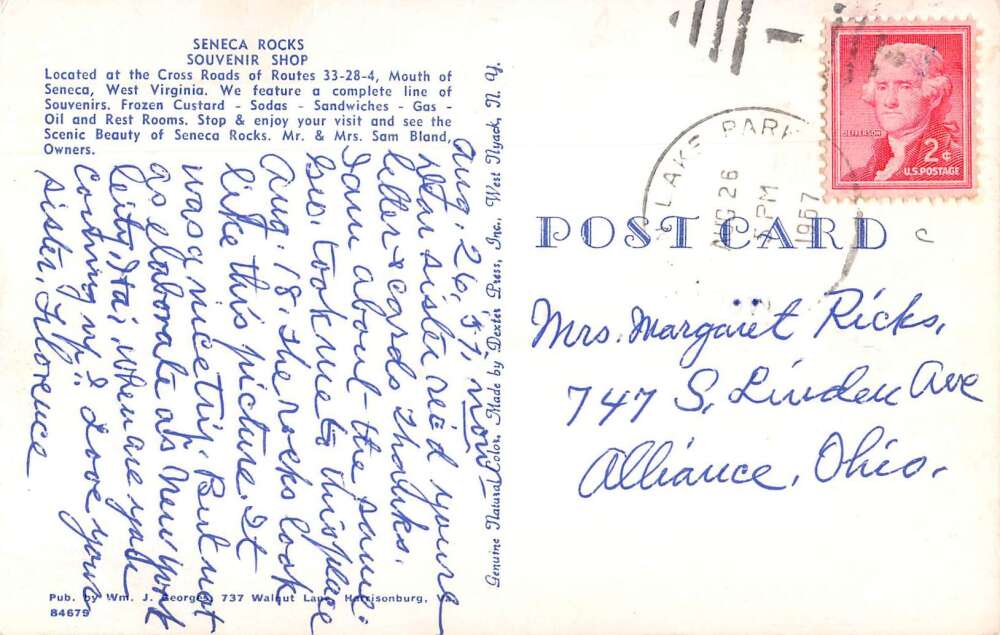 SENECA ROCKS
SOUVENIR SHOP
Located at the Cross Roads of Routes 33-28-4, Mouth of
Seneca, West Virginia. We feature a complete line of
Souvenirs. Frozen Custard - Sodas - Sandwiches - Gas -
Oil and Rest Rooms. Stop & enjoy your visit and see the
Scenic Beauty of Seneca Rocks. Mr. & Mrs. Sam Bland,
Owners.
Aug. 26, 57,
Dear sister rec'd your
letter & cards Thanks.
I am about the same.
Geo. took me to this place
Aug. 18. The rocks look
like this picture. It
was a nice trip. But not
as elaborate as New York
City, Ha, when are you
coming up. I Love your
sister, Florence
Pub. by Wm. J. George, 737 Walnut Lane, Harrisonburg, Va.
84679
Genuine Natural Color, Made by Dexter Press, Inc., West Nyack, N. Y.
POST CARD
LAKE PARK
AUG 26
5 PM
1957
JEFFERSON
2¢
U.S. POSTAGE
Mrs. Margaret Ricks,
747 S. Linden Ave
Alliance, Ohio.